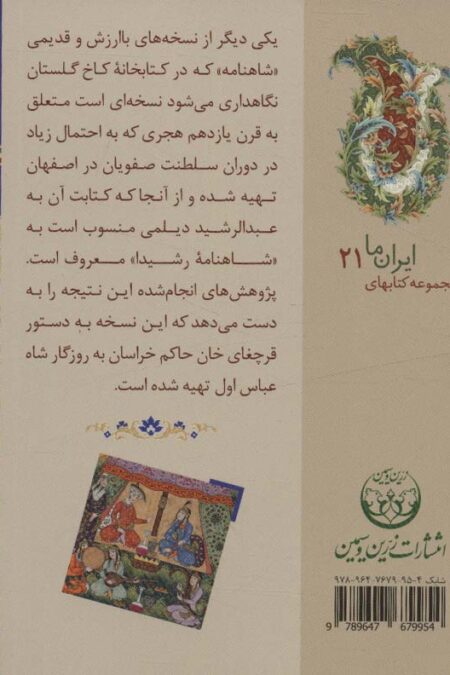 یکی دیگر از نسخه‌های باارزش و قدیمی
«شاهنامه» که در کتابخانهٔ کاخ گلستان
نگاهداری می‌شود نسخه‌ای است متعلق
به قرن یازدهم هجری که به احتمال زیاد
در دوران سلطنت صفویان در اصفهان
تهیه شده و از آنجا که کتابت آن به
عبدالرشید دیلمی منسوب است به
«شاهنامهٔ رشیدا» معروف است.
پژوهش‌های انجام‌شده این نتیجه را به
دست می‌دهد که این نسخه به دستور
قرچغای خان حاکم خراسان به روزگار شاه
عباس اول تهیه شده است.
ایران ما ۲۱
جموعه کتابهای
زرین و سیمین
انتشارات زرین و سیمین
شابک ۴-۹۵-۷۶۷۹-۹۶۴-۹۷۸
9 789647 679954